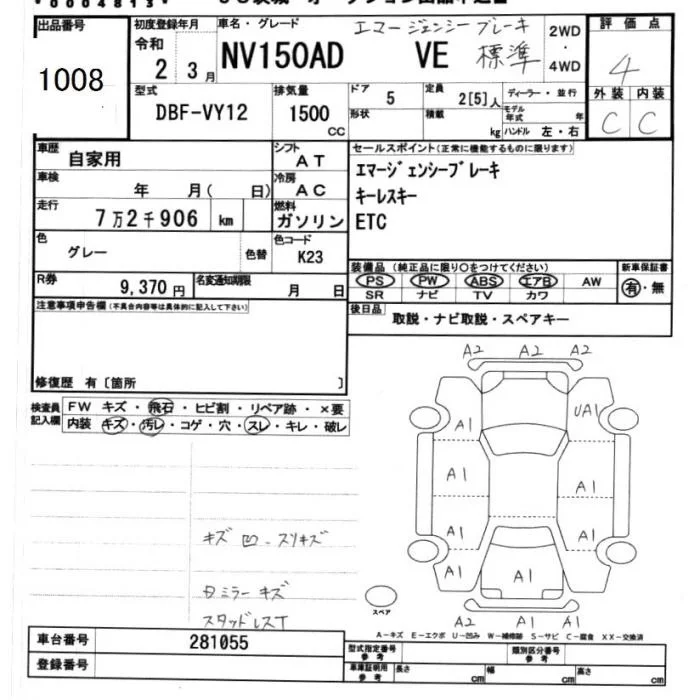 V0004813V
出品番号 初度登録年月 車名・グレード エマージェンシーブレーキ 2WD・4WD 評価点
1008 令和 2年 3月 NV150AD VE 標準 4
型式 排気量 ドア 定員 ディーラー・並行 外装 内装
DBF-VY12 1500 CC 5 2[5]人 モデル年式 年 C C
形状 積載 kg ハンドル 左・右
車歴 自家用 シフト AT セールスポイント(正常に機能するものに限ります)
車検 年 月( 日) 冷房 AC エマージェンシーブレーキ
走行 7万2千906 km 燃料 ガソリン キーレスキー
ETC
色 グレー 色替 色コード K23
装備品 (純正品に限り○をつけてください) 新車保証書
R券 9,370円 名変通知期限 月 日 PS PW ABS エアB AW 有・無
SR ナビ TV カワ
注意事項申告欄(不具合内容等は具体的に記入して下さい) 後日品 取説・ナビ取説・スペアキー
修復歴 有[箇所 ]
検査員記入欄 FW キズ・飛石・ヒビ割・リペア跡・×要
内装 キズ・汚レ・コゲ・穴・スレ・キレ・破レ
A2 A2 A2
A1 UA1
A1 A1
A1 A1
A1 A1 A1
A2 A1 A1
キズ 凹 スリキズ
ミラーキズ
スタッドレスT
スペア
A-キズ E-エクボ U-凹み W-補修跡 S-サビ C-腐食 XX-交換済
車台番号 281055 型式指定番号 参考 類別区分番号 参考
登録番号 車庫証明用 参考 長さ cm 幅 cm 高さ cm